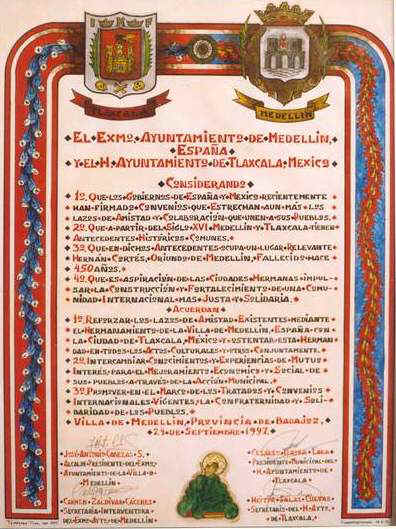 I F
TLAXCALA
MEDELLIN
EL EXMO. AYUNTAMIENTO DE MEDELLIN,
ESPAÑA
Y EL H. AYUNTAMIENTO DE TLAXCALA, MEXICO
CONSIDERANDO
1º. QUE LOS GOBIERNOS DE ESPAÑA Y MEXICO RECIENTEMENTE
HAN FIRMADO CONVENIOS QUE ESTRECHAN AUN MAS LOS
LAZOS DE AMISTAD Y COLABORACIÓN QUE UNEN A SUS PUEBLOS.
2º. QUE A PARTIR DEL SIGLO XVI MEDELLIN Y TLAXCALA TIENEN
ANTECEDENTES HISTÓRICOS COMUNES.
3º. QUE EN DICHOS ANTECEDENTES OCUPA UN LUGAR RELEVANTE
HERNÁN CORTÉS, ORIUNDO DE MEDELLIN, FALLECIDO HACE
450 AÑOS.
4º. QUE ES ASPIRACIÓN DE LAS CIUDADES HERMANAS IMPUL-
SAR LA CONSTRUCCIÓN Y FORTALECIMIENTO DE UNA COMU-
NIDAD INTERNACIONAL MAS JUSTA Y SOLIDARIA.
ACUERDAN
1º. REFORZAR LOS LAZOS DE AMISTAD EXISTENTES MEDIANTE
EL HERMANAMIENTO DE LA VILLA DE MEDELLIN, ESPAÑA CON
LA CIUDAD DE TLAXCALA, MEXICO Y OSTENTAR ESTA HERMAN-
DAD EN TODOS LOS ACTOS CULTURALES Y OTROS CONJUNTAMENTE.
2º. INTERCAMBIAR CONOCIMIENTOS Y EXPERIENCIAS DE MUTUO
INTERÉS PARA EL MEJORAMIENTO ECONOMICO Y SOCIAL DE
SUS PUEBLOS A TRAVES DE LA ACCIÓN MUNICIPAL.
3º. PROMOVER EN EL MARCO DE LOS TRATADOS Y CONVENIOS
INTERNACIONALES VIGENTES, LA CONFRATERNIDAD Y SOLI-
DARIDAD DE LOS PUEBLOS.
VILLA DE MEDELLIN, PROVINCIA DE BADAJOZ,
DE SEPTIEMBRE 1997.
JOSÉ ANTONIO
ALCALDE PRESIDENTE DEL EXMO.
AYUNTAMIENTO DE LA VILLA D
MEDELLIN
PRESIDENTE MUNICIPAL DEL
H. AYUNTAMIENTO DE
TLAXCALA.
CARMEN ZALDIVAR CÁCERES
SECRETARIA INTERVENTORA
DEL EXMO. AYTO. DE MEDELLIN
SALAS CUATAS
SECRETARIO DEL H. AYTO.
DE TLAXCALA.